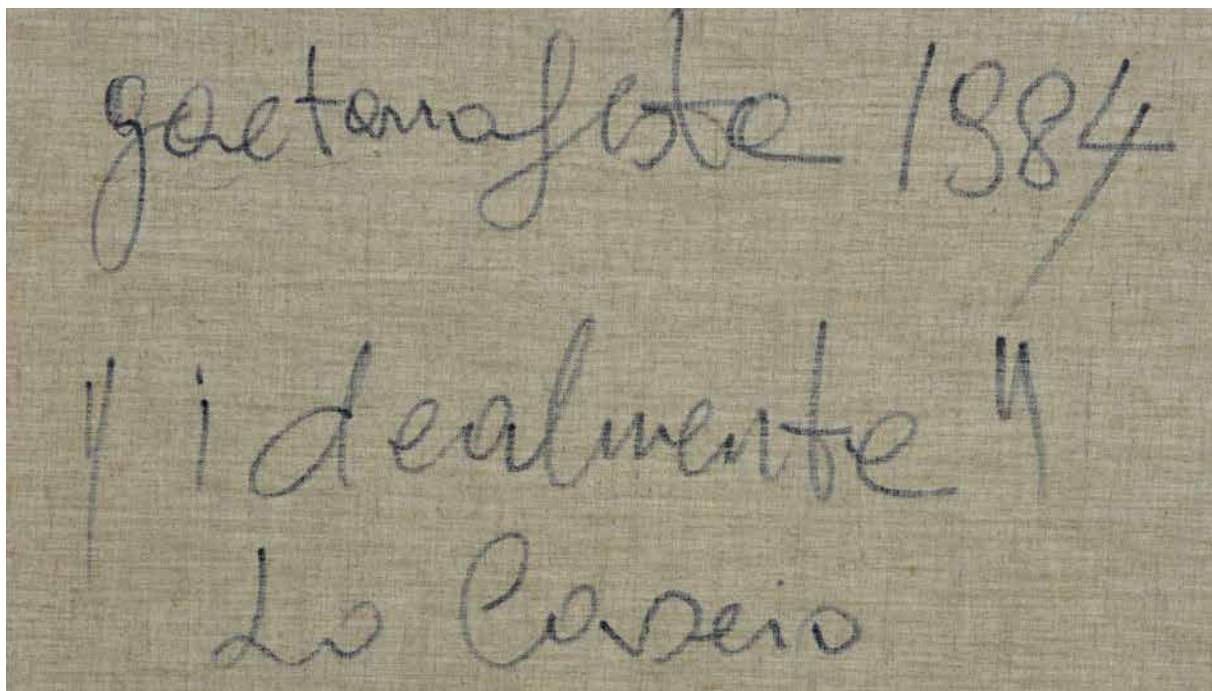 gaetanofesta 1984
"idealmente"
Lo Cascio